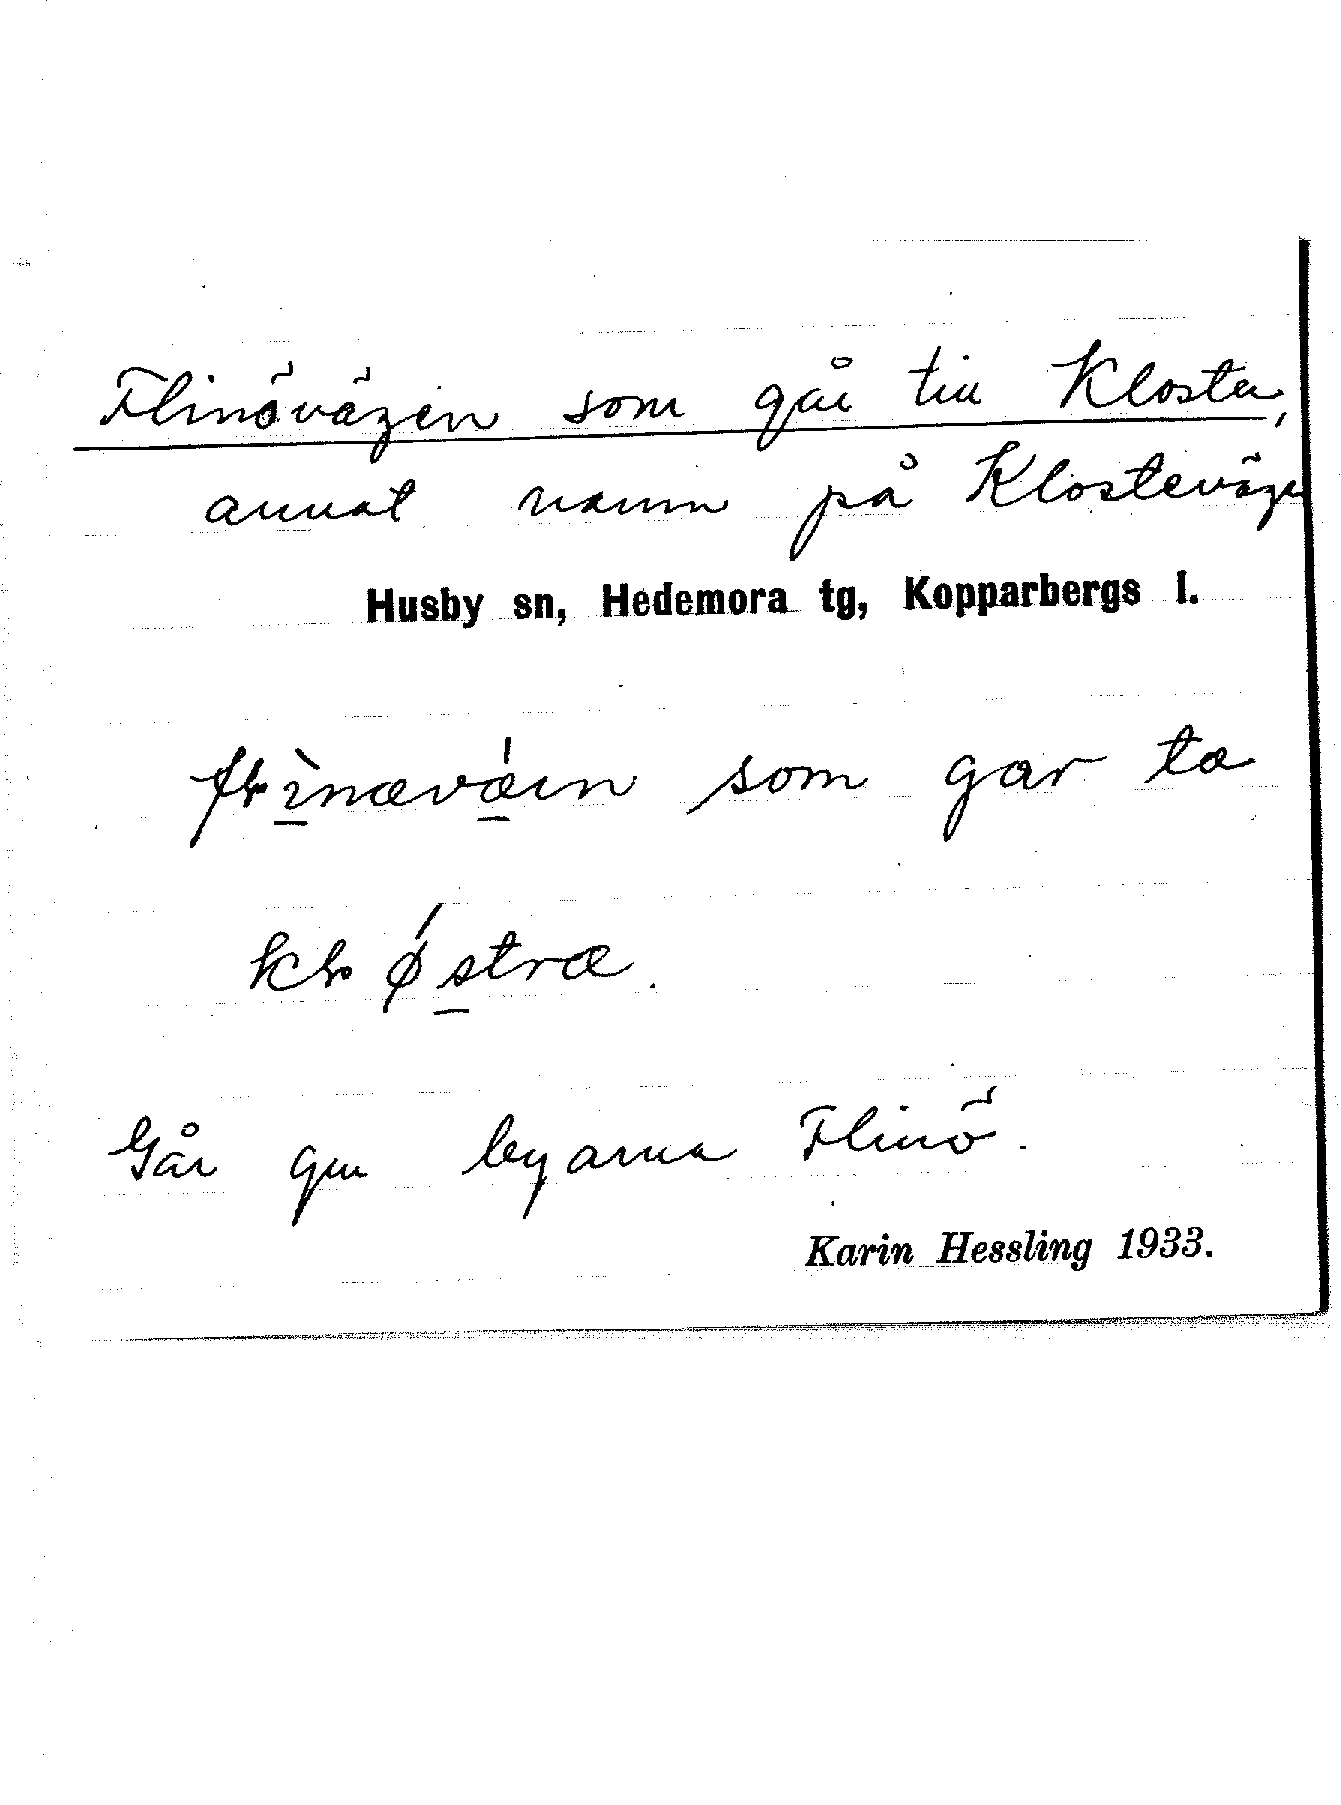 Flinövägen som går till Kloster,
annat namn på Klostervägen
Husby sn, Hedemora tg, Kopparbergs l.
som gar ta
Går gm byarna Flinö.
Karin Hessling 1933.